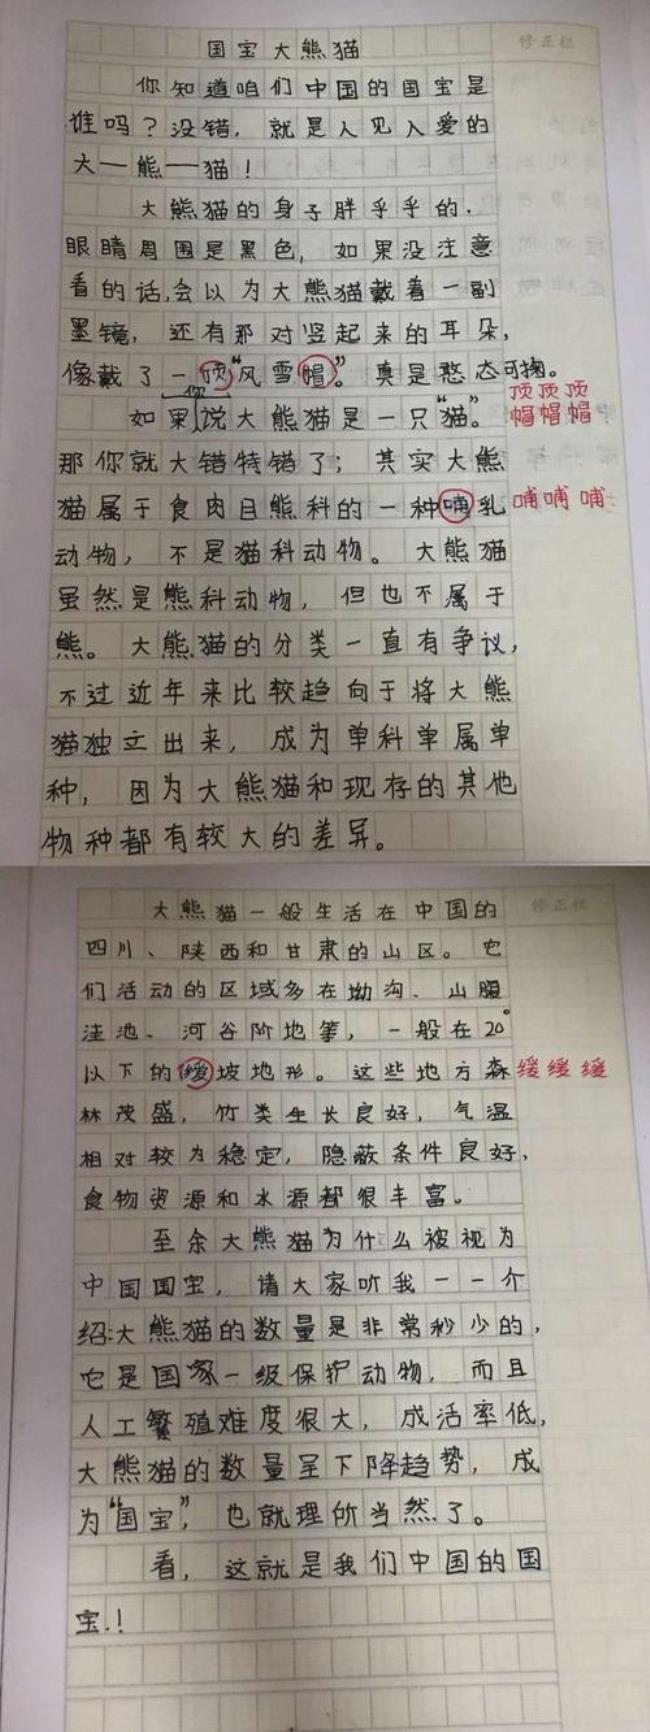 国宝大熊猫
修正栏
你知道咱们中国的国宝是
谁吗？没错，就是人见人爱的
大一熊一猫！
大熊猫的身子胖乎乎的，
眼睛周围是黑色，如果没注意
看的话，会以为大熊猫戴着一副
墨镜，还有那对竖起来的耳朵，
像戴了一顶“风雪帽”。真是憨态可掬。
顶顶顶
帽帽帽
如果你说大熊猫是一只“猫”。
那你就大错特错了；其实大熊
猫属于食肉目熊科的一种哺乳
哺哺哺
动物，不是猫科动物。大熊猫
虽然是熊科动物，但也不属于
熊。大熊猫的分类一直有争议，
不过近年来比较趋向于将大熊
猫独立出来，成为单科单属单
种，因为大熊猫和现存的其他
物种都有较大的差异。
大熊猫一般生活在中国的
修正栏
四川、陕西和甘肃的山区。它
们活动的区域多在坳沟、山腹
洼池、河谷阶地等，一般在20°
以下的缓坡地形。这些地方森
缓缓缓
林茂盛，竹类生长良好，气温
相对较为稳定，隐蔽条件良好，
食物资源和水源都很丰富。
至余大熊猫为什么被视为
中国国宝，请大家听我一一介
绍：大熊猫的数量是非常秒少的，
它是国家一级保护动物，而且
人工繁殖难度很大，成活率低，
大熊猫的数量呈下降趋势，成
为“国宝”，也就理所当然了。
看，这就是我们中国的国
宝！